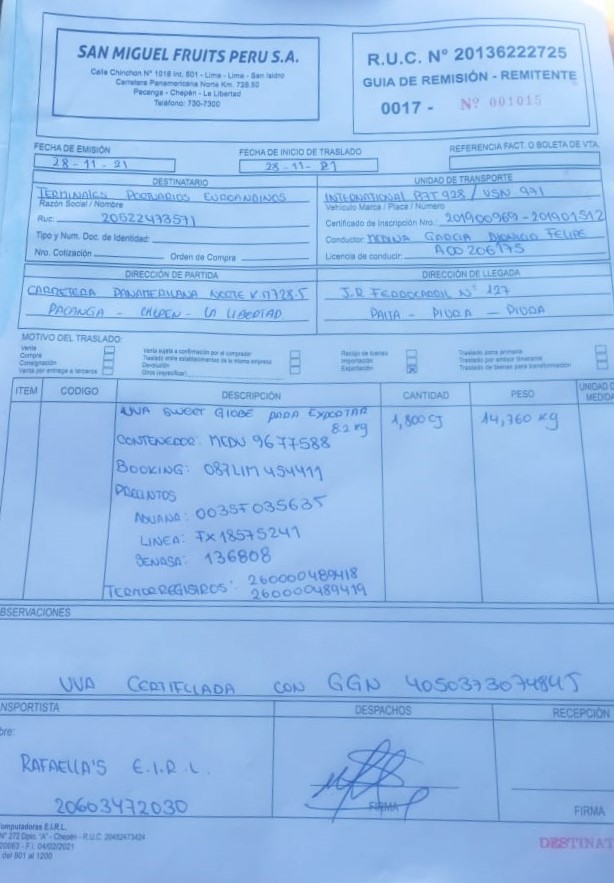 SAN MIGUEL FRUITS PERU S.A.
Calle Chinchon N° 1018 Int. 601 - Lima - Lima - San Isidro
Carretera Panamericana Norte Km. 728.50
Pacanga - Chepén - La Libertad
Teléfono: 730-7300
R.U.C. N° 20136222725
GUIA DE REMISIÓN - REMITENTE
0017 - N° 001015
FECHA DE EMISIÓN
28-11-21
FECHA DE INICIO DE TRASLADO
28-11-21
REFERENCIA FACT. O BOLETA DE VTA.
DESTINATARIO
TERMINALES PORTUARIOS EUROANDINOS
Razón Social / Nombre
Ruc: 20522473571
Tipo y Num. Doc. de Identidad:
Nro. Cotización Orden de Compra
UNIDAD DE TRANSPORTE
INTERNATIONAL 928 /
Vehículo Marca / Placa / Número
Certificado de Inscripción Nro.: 201900969 - 201901512
Conductor: MEDINA GARCIA DIONICIO FELIPE
Licencia de conducir: A00206175
DIRECCIÓN DE PARTIDA
CARRETERA PANAMERICANA NORTE KM728.5
PACANGA - CHEPEN - LA LIBERTAD
DIRECCIÓN DE LLEGADA
J.R FERROCARRIL N° 127
PAITA - PIURA - PIURA
MOTIVO DEL TRASLADO:
Venta
Compra
Consignación
Venta por entrega a terceros
Venta sujeta a confirmación por el comprador
Traslado entre establecimientos de la misma empresa
Devolución
Otros (especificar)
Recojo de bienes
Importación
Exportación
Traslado zona primaria
Traslado por emisor itinerante
Traslado de bienes para transformación
ITEM CODIGO DESCRIPCIÓN CANTIDAD PESO UNIDAD D MEDIDA
UVA SWEET GLOBE PARA EXPORTAR 1,800 CJ 14,760 Kg
8.2 Kg
CONTENEDOR: MEDU 9677588
BOOKING: 087LIM454411
PRECINTOS
ADUANA: 0035F035635
LINEA: FX18575241
SENASA: 136808
TERMORREGISTROS: 260000489418
260000489419
OBSERVACIONES
UVA CERTIFICADA CON GGN 4050373074845
NSPORTISTA
DESPACHOS
RECEPCIÓN
bre:
RAFAELLA'S E.I.R.L.
20603472030
FIRMA
FIRMA
omputadoras E.I.R.L.
N° 272 Dpto. "A" - Chepén - R.U.C. 20482473424
- F.I. 04/02/2021
del 801 al 1200
DESTINAT